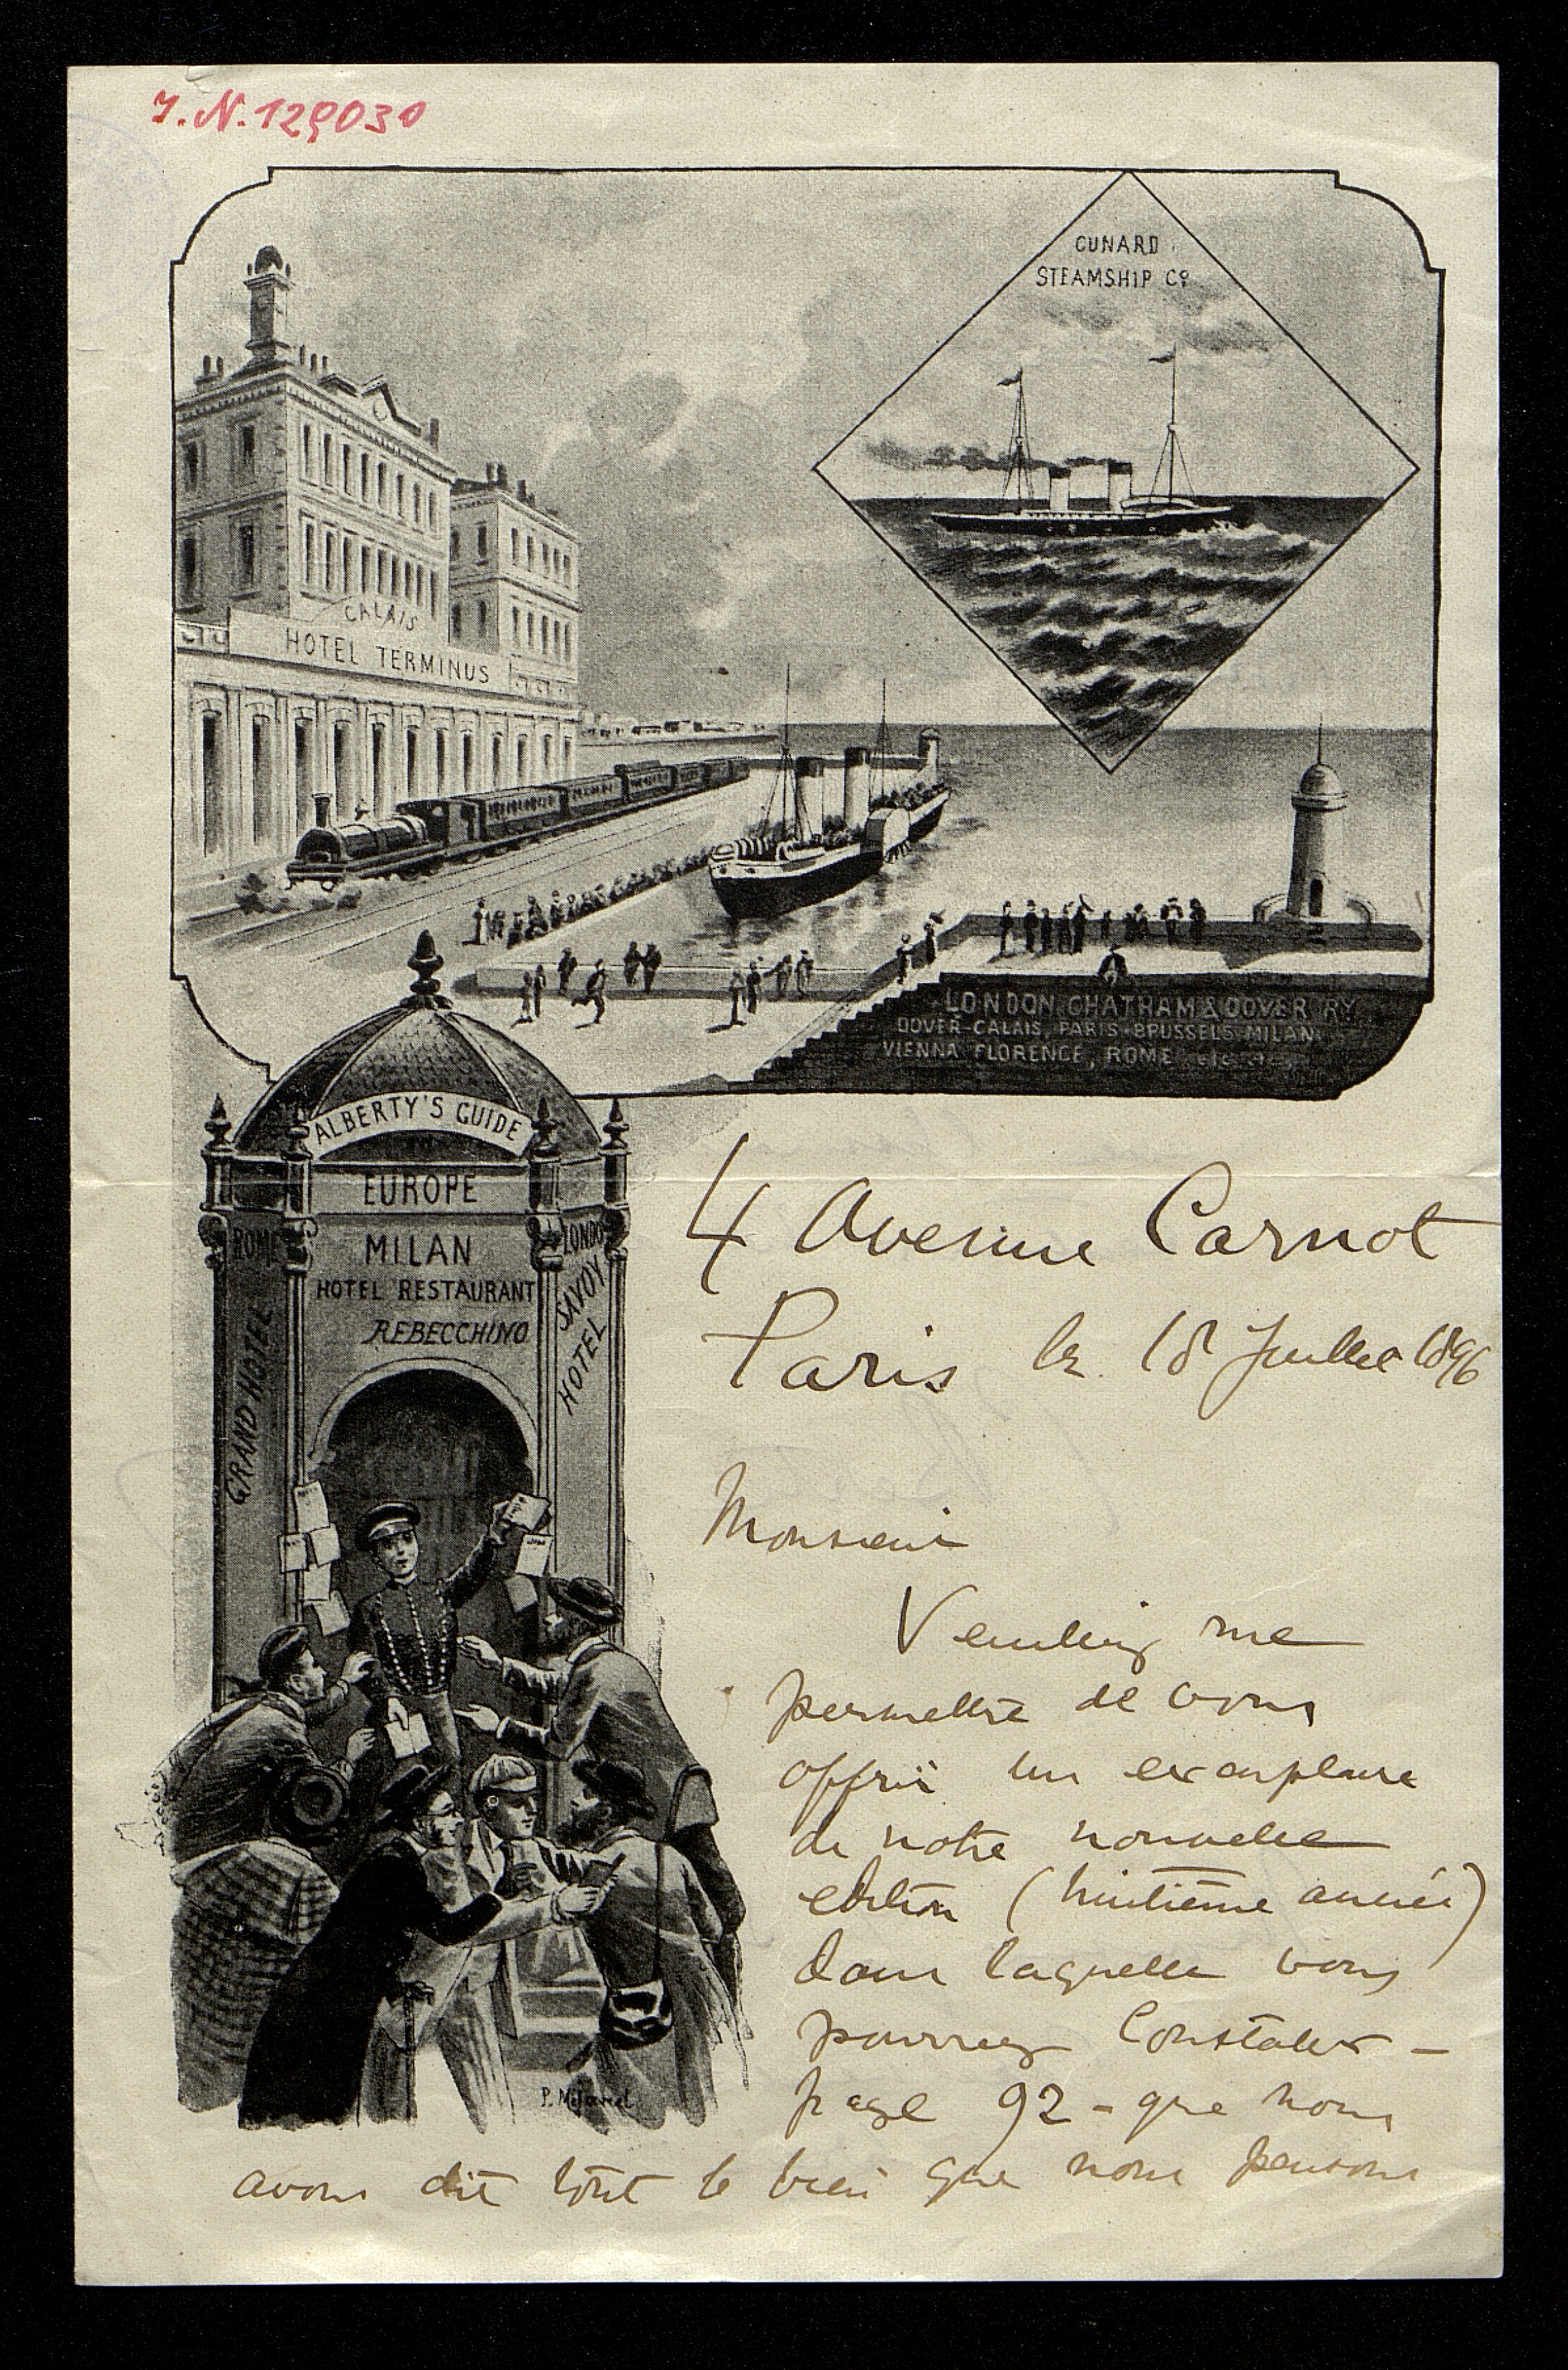 I.N. 129030
CUNARD
STEAMSHIP Co
CALAIS
HOTEL TERMINUS
LONDON CHATHAM & DOVER RY
DOVER-CALAIS, PARIS-BRUSSELS, MILAN
VIENNA FLORENCE, ROME
ALBERTY'S GUIDE
EUROPE
ROME
MILAN
LONDO
HOTEL RESTAURANT
REBECCHINO
GRAND HOTEL
SAVOY
HOTEL
4 Avenue Carnot
Paris le 18 Juillet 1896
Monsieur
Veuillez me
permettre de vous
offrir un exemplaire
de notre nouvelle
edition (huitième année)
dans laquelle vous
pourrez constater -
page 92 - que nous
avons dit tout le bien que nous pensons